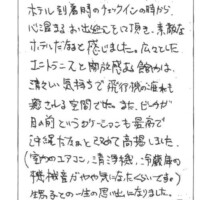 ホテル到着時のチェックインの時から、
心温まるお出迎えをして頂き、素敵な
ホテルだなぁと感じました。広々とした
エントランスと開放感ある館内は、
清々しい気持ちで飛行機の疲れも
癒される空間でした。また、ビーチが
目の前というロケーションも最高で
沖縄だなぁと改めて高揚しました。
(室内のエアコン、清浄機、冷蔵庫の
機械音がやや気になったくらいです)
息子との一生の思い出になりました。